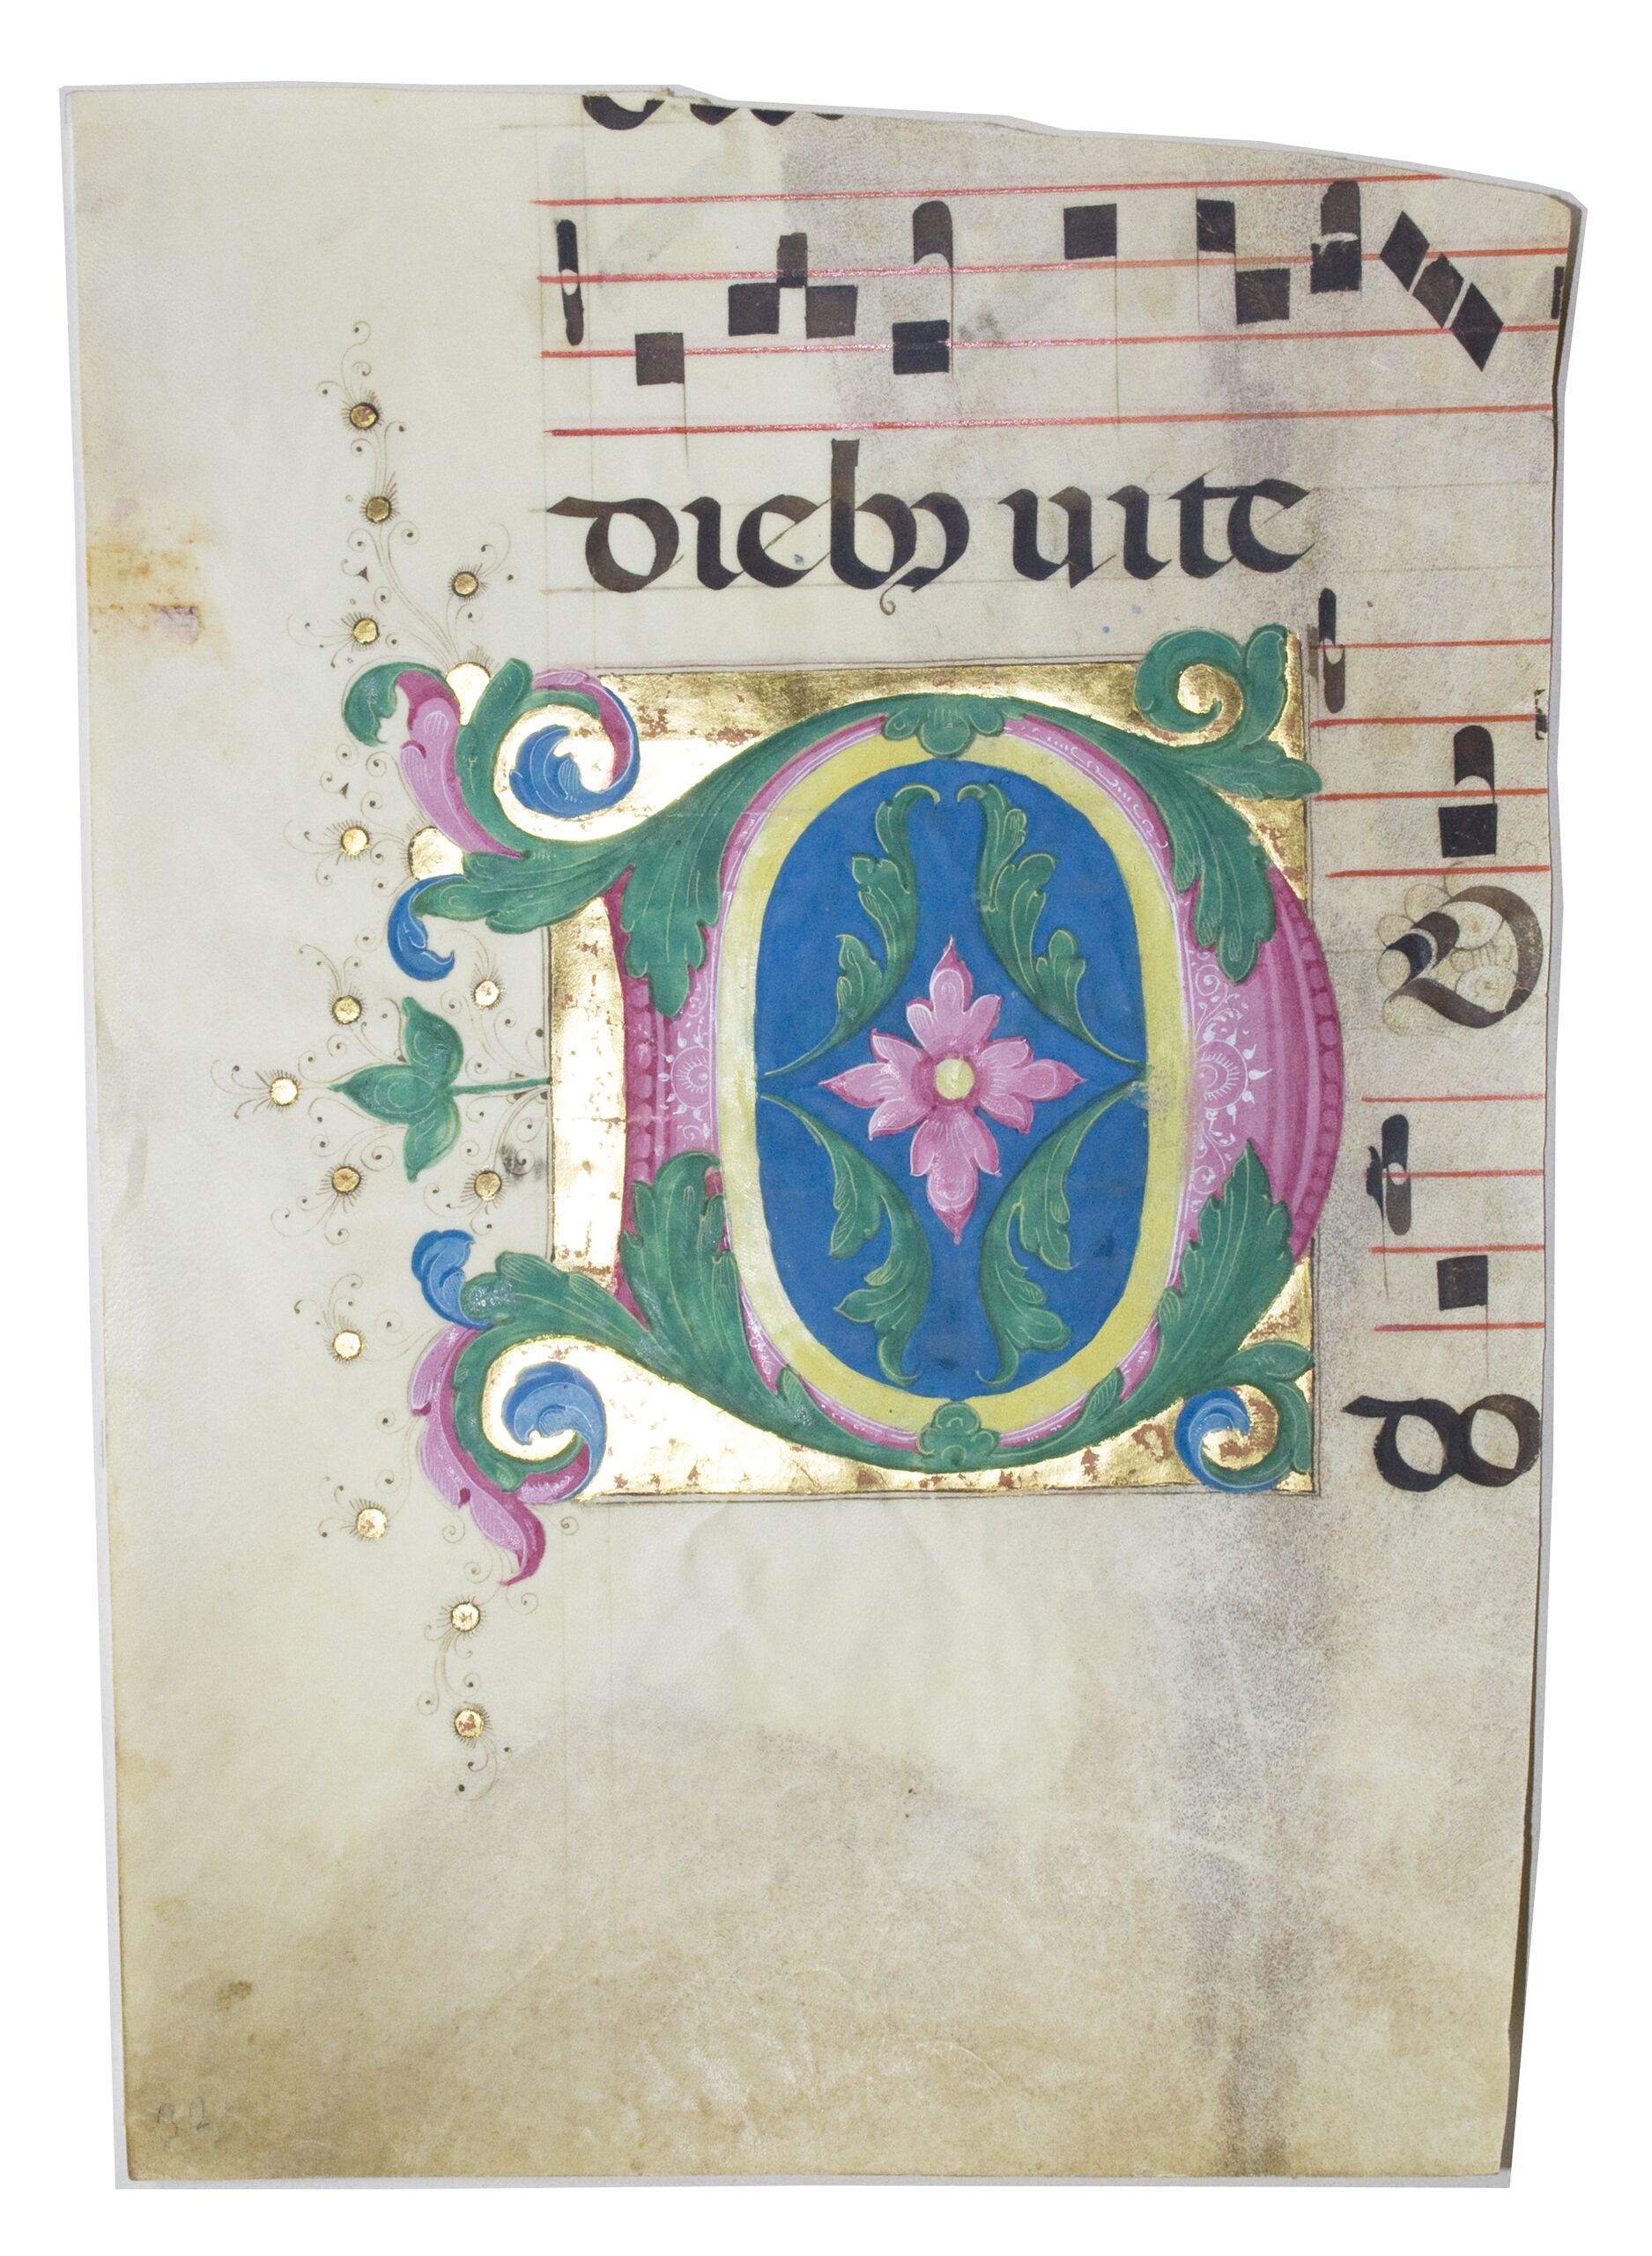 dieb9 uite
D
O
do
32